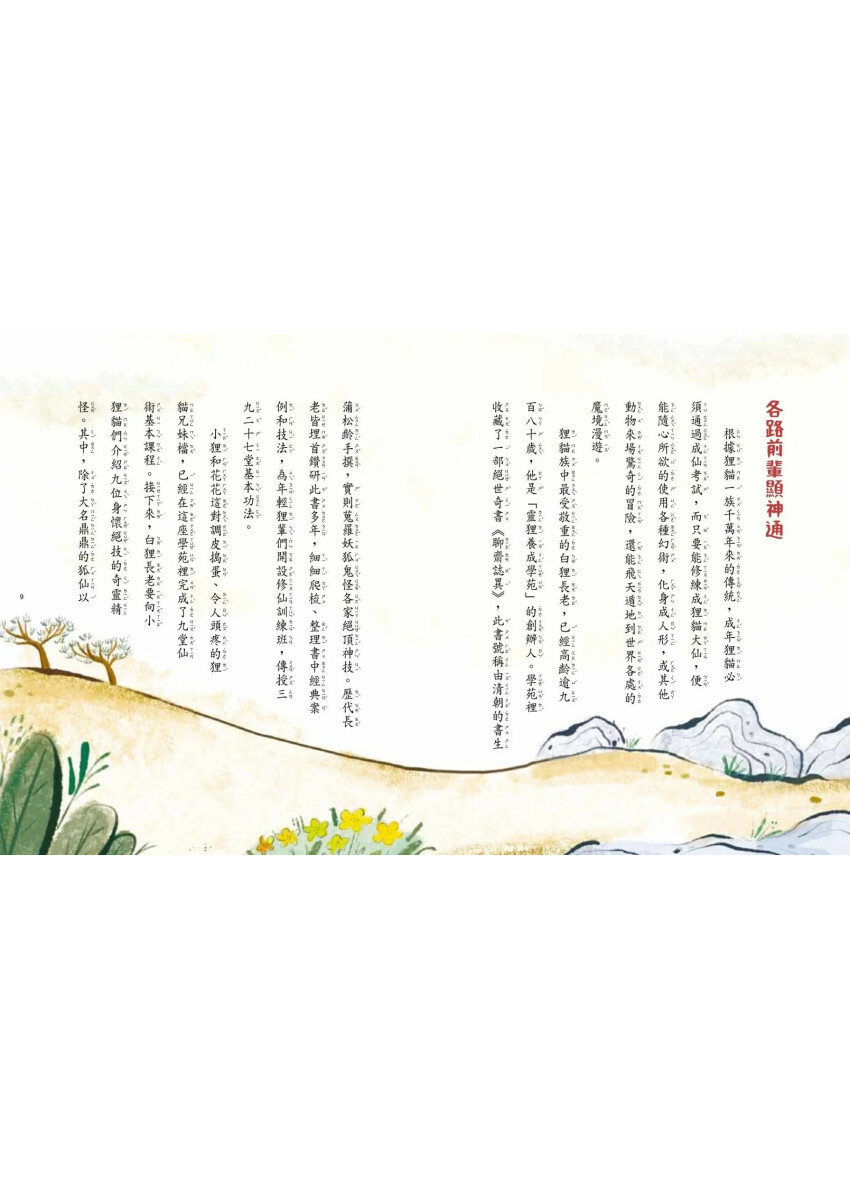 各路前輩顯神通
根據狸貓一族千萬年來的傳統，成年狸貓必
須通過成仙考試，而只要能修練成狸貓大仙，便
能隨心所欲的使用各種幻術，化身成人形，或其他
動物來場驚奇的冒險，還能飛天遁地到世界各處的
魔境漫遊。
狸貓族中最受敬重的白狸長老，已經高齡逾九
百八十歲，他是「靈狸養成學苑」的創辦人。學苑裡
收藏了一部絕世奇書《聊齋誌異》，此書號稱由清朝的書生
蒲松齡手撰，實則蒐羅妖狐鬼怪各家絕頂神技。歷代長
老皆埋首鑽研此書多年，細細爬梳、整理書中經典案
例和技法，為年輕狸輩們開設修仙訓練班，傳授三
九二十七堂基本功法。
小狸和花花這對調皮搗蛋、令人頭疼的狸
貓兄妹檔，已經在這座學苑裡完成了九堂仙
術基本課程。接下來，白狸長老要向小
狸貓們介紹九位身懷絕技的奇靈精
怪。其中，除了大名鼎鼎的狐仙以
9